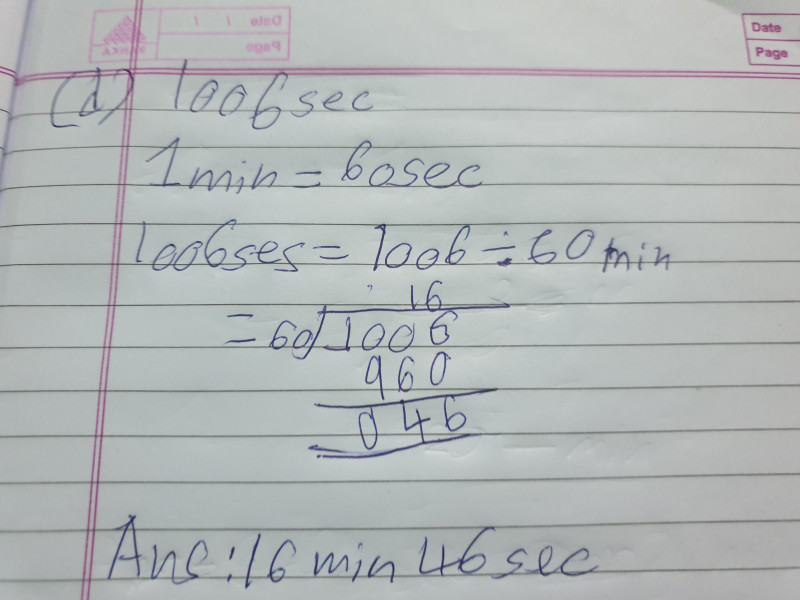 Date
Page
(d) 1006sec
1min = 60sec
1006ses = 1006 ÷ 60 min
16
= 60)1006
960
046
Ans: 16 min 46 sec